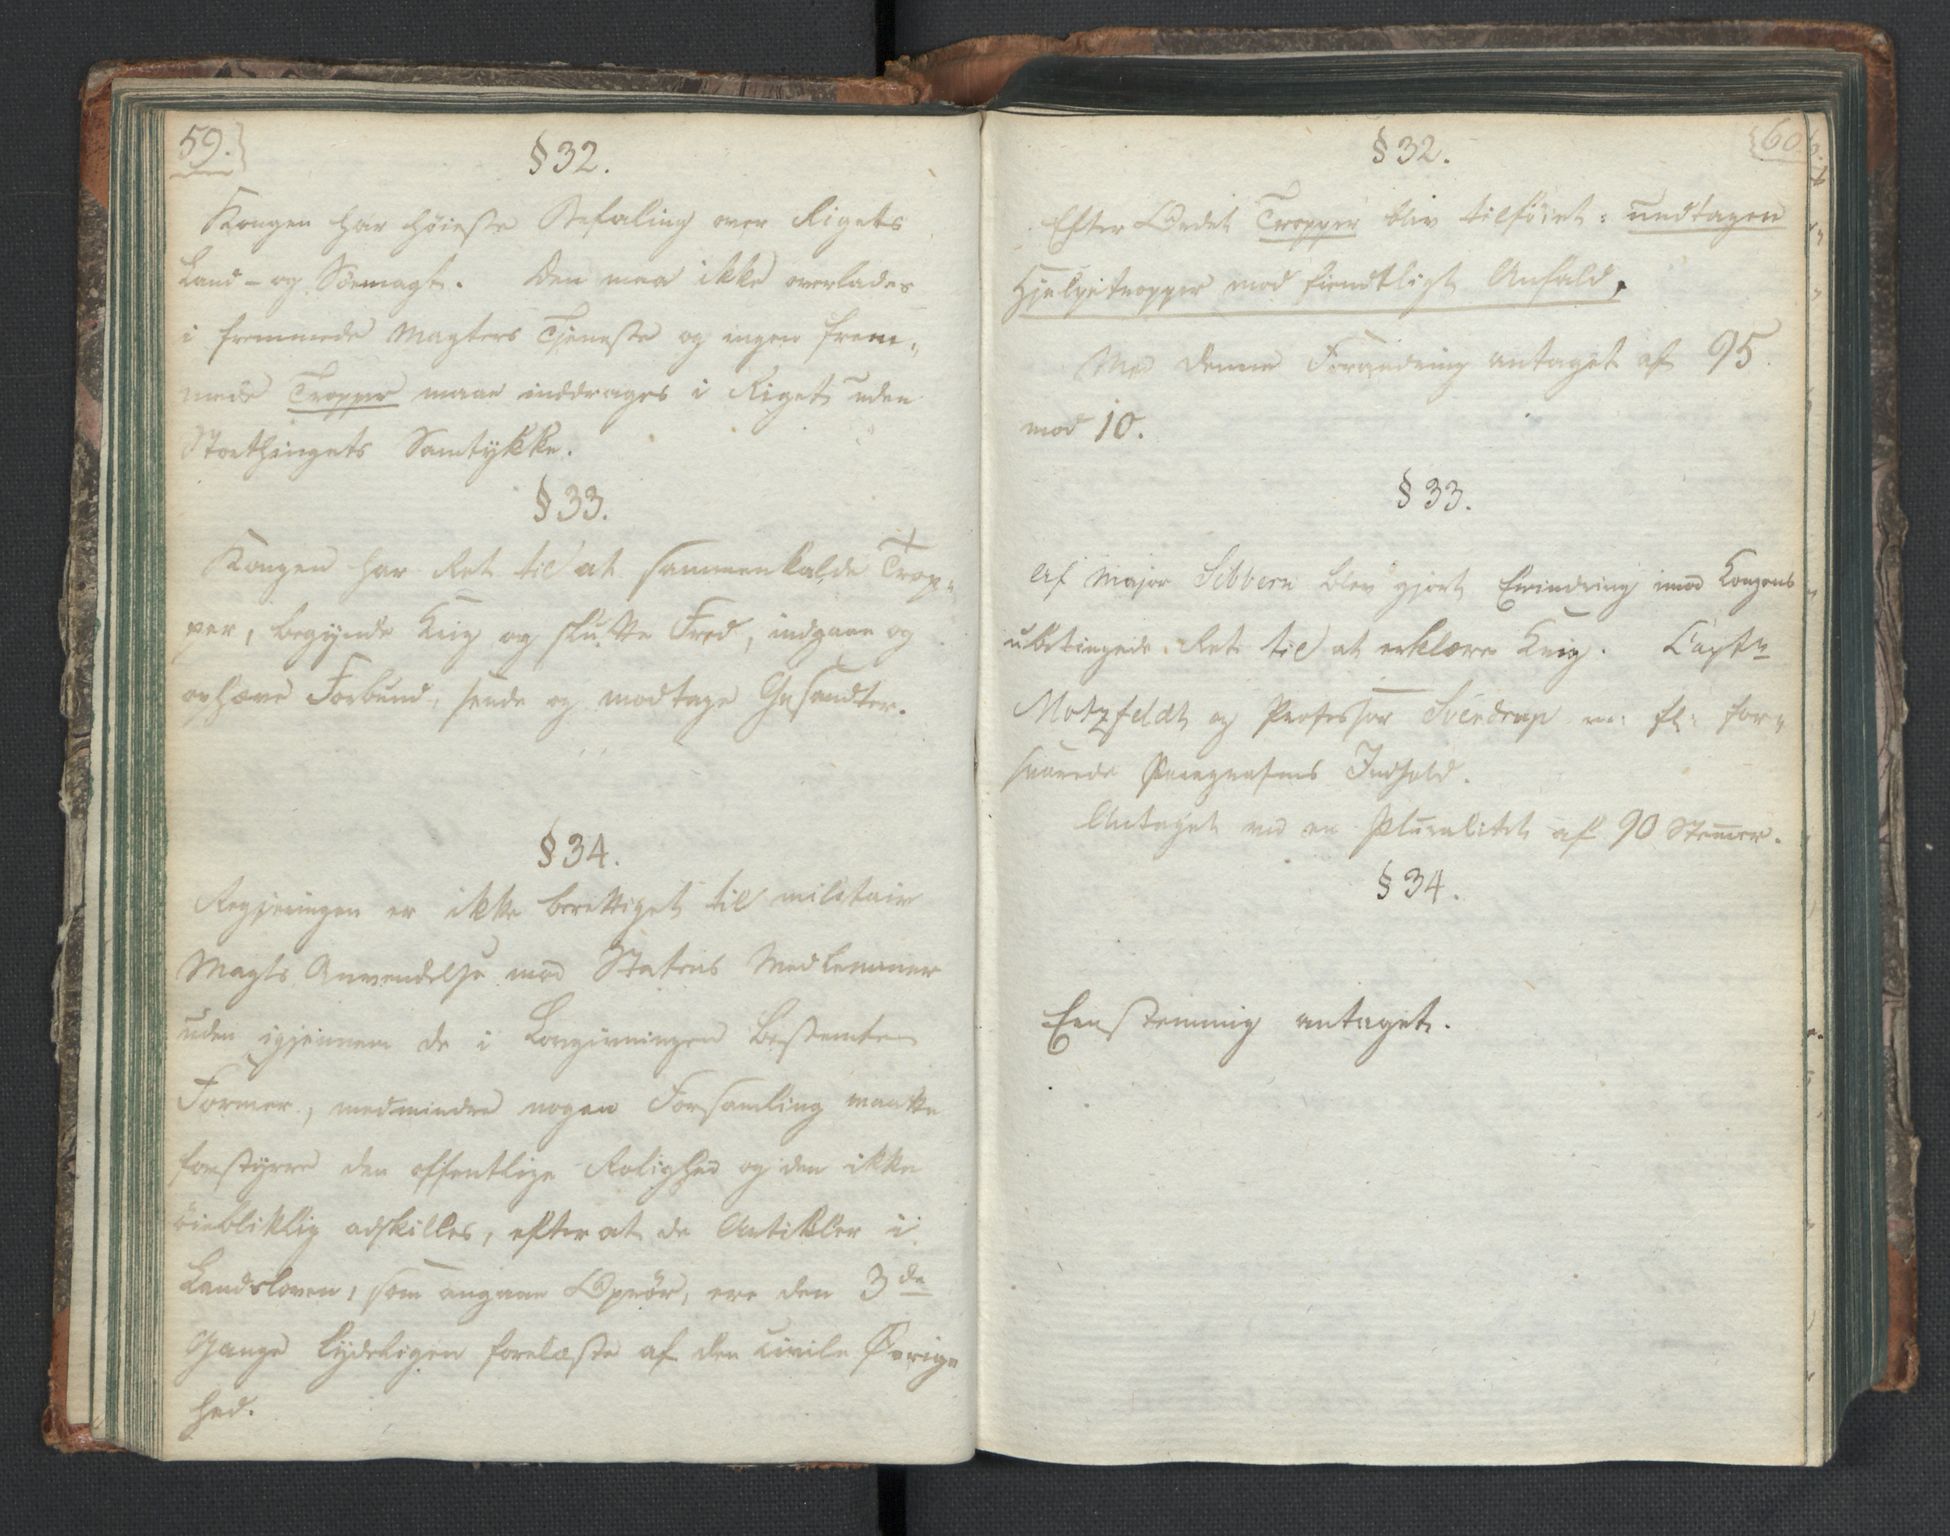 59.
§ 32.
Kongen har höieste Befaling over Rigets
Land- og Söemagt. Den maa ikke overlades
i fremmede Magters Tjeneste og ingen frem-
mede Tropper maae inddrages i Riget uden
Storthingets Samtykke.
§ 33.
Kongen har Ret til at sammenkalde Trop-
per, begynde Krig og slutte Fred, indgaae og
ophæve Forbund, sende og modtage Gesandter.
§ 34.
Regjeringen er ikke berettiget til militair
Magts Anvendelse mod Statens Medlemmer
uden igjennem de i Lovgivningen bestemte
Former, medmindre nogen Forsamling maatte
forstyrre den offentlige Rolighed og den ikke
öiebliklig adskilles, efter at de Artikler i
Landsloven, som angaae Oprör, ere den 3de
Gange lydeligen forelæste af den civile Øvrig-
hed.
60
§ 32.
Efter Ordet Tropper blev tilföiet: undtagen
Hjelpetropper mod fiendtligt Anfald.
Med denne Forandring antaget af 95.
mod 10.
§ 33.
Af Major Sibbern blev gjort Erindring imod Kongens
ubetingede Ret til at erklære Krig. Captn
Motzfeldt og Professor Sverdrup m: fl: for-
svarede Paragrafens Indhold.
Antaget ved en Pluralitet af 90 Stemer.
§ 34.
Eenstemmig antaget.